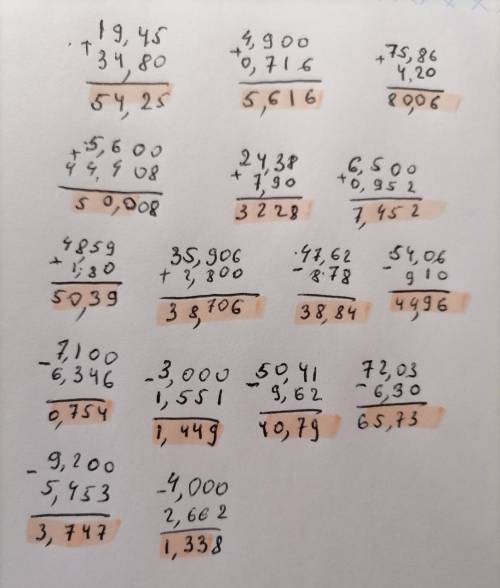 + 19,45
34,80
54,25
+ 4,900
0,716
5,616
+ 75,86
4,20
80,06
+ 5,600
44,408
50,008
24,38
+ 7,90
3228
6,500
+ 0,952
7,452
4859
+ 1,80
50,39
35,906
+ 2,800
38,706
47,62
- 8.78
38,84
54,06
- 910
44,96
- 7,100
6,346
0,754
- 3,000
1,551
1,449
50,41
- 9,62
40,79
72,03
- 6,30
65,73
- 9,200
5,453
3,747
- 4,000
2,662
1,338